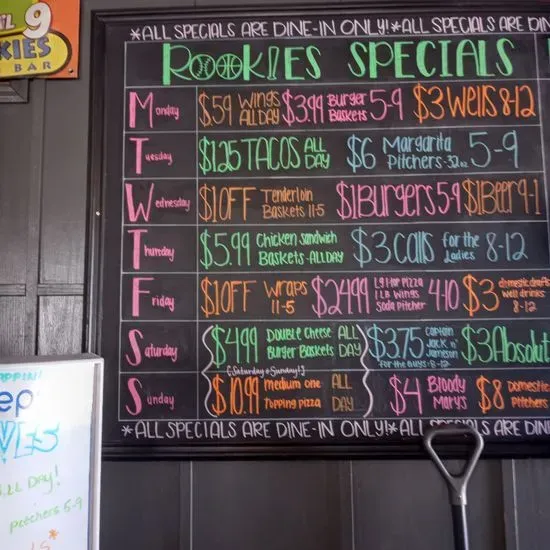 9
KIES
BAR
*ALL SPECIALS ARE DINE-IN ONLY!*ALL SPECIALS ARE DIN
ROOKIES SPECIALS
Monday $.59 WINGS ALL DAY $3.99 Burger Baskets 5-9 $3 Wells 8-12
Tuesday $1.25 TACOS ALL DAY $6 Margarita Pitchers-32oz 5-9
Wednesday $1 OFF Tenderloin Baskets 11-5 $1 Burgers 5-9 $1 Beer 9-1
Thursday $5.99 Chicken Sandwich Baskets-ALL DAY $3 Calls for the Ladies 8-12
Friday $1 OFF Wraps 11-5 $24.99 Lg 1 top Pizza 1 LB Wings Soda Pitcher 4-10 $3 domestic drafts well drinks 8-12
Saturday $4.99 Double Cheese Burger Baskets ALL DAY $3.75 Captain Jack n' Jameson For the Guys-8-12 $3 Absolut
(Saturday & Sunday!)
Sunday $10.99 Medium one Topping pizza ALL DAY $4 Bloody Mary's $8 Domestic Pitchers
*ALL SPECIALS ARE DINE-IN ONLY!*ALL SPECIALS ARE DIN
APPNIN'
ep
ALL DAY!
pitchers 5-9